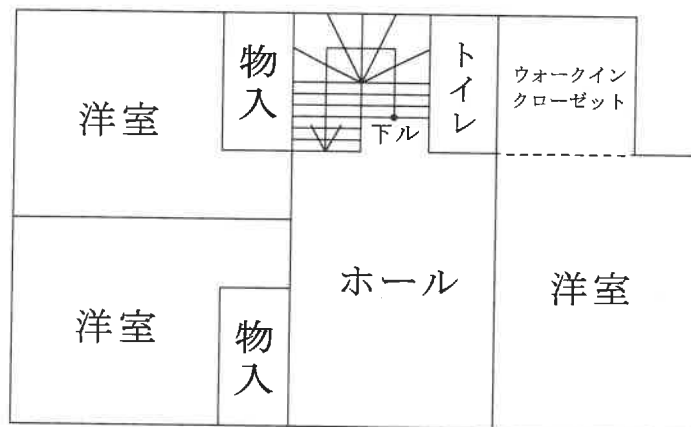 洋室
物入
下ル
トイレ
ウォークイン
クローゼット
洋室
物入
ホール
洋室